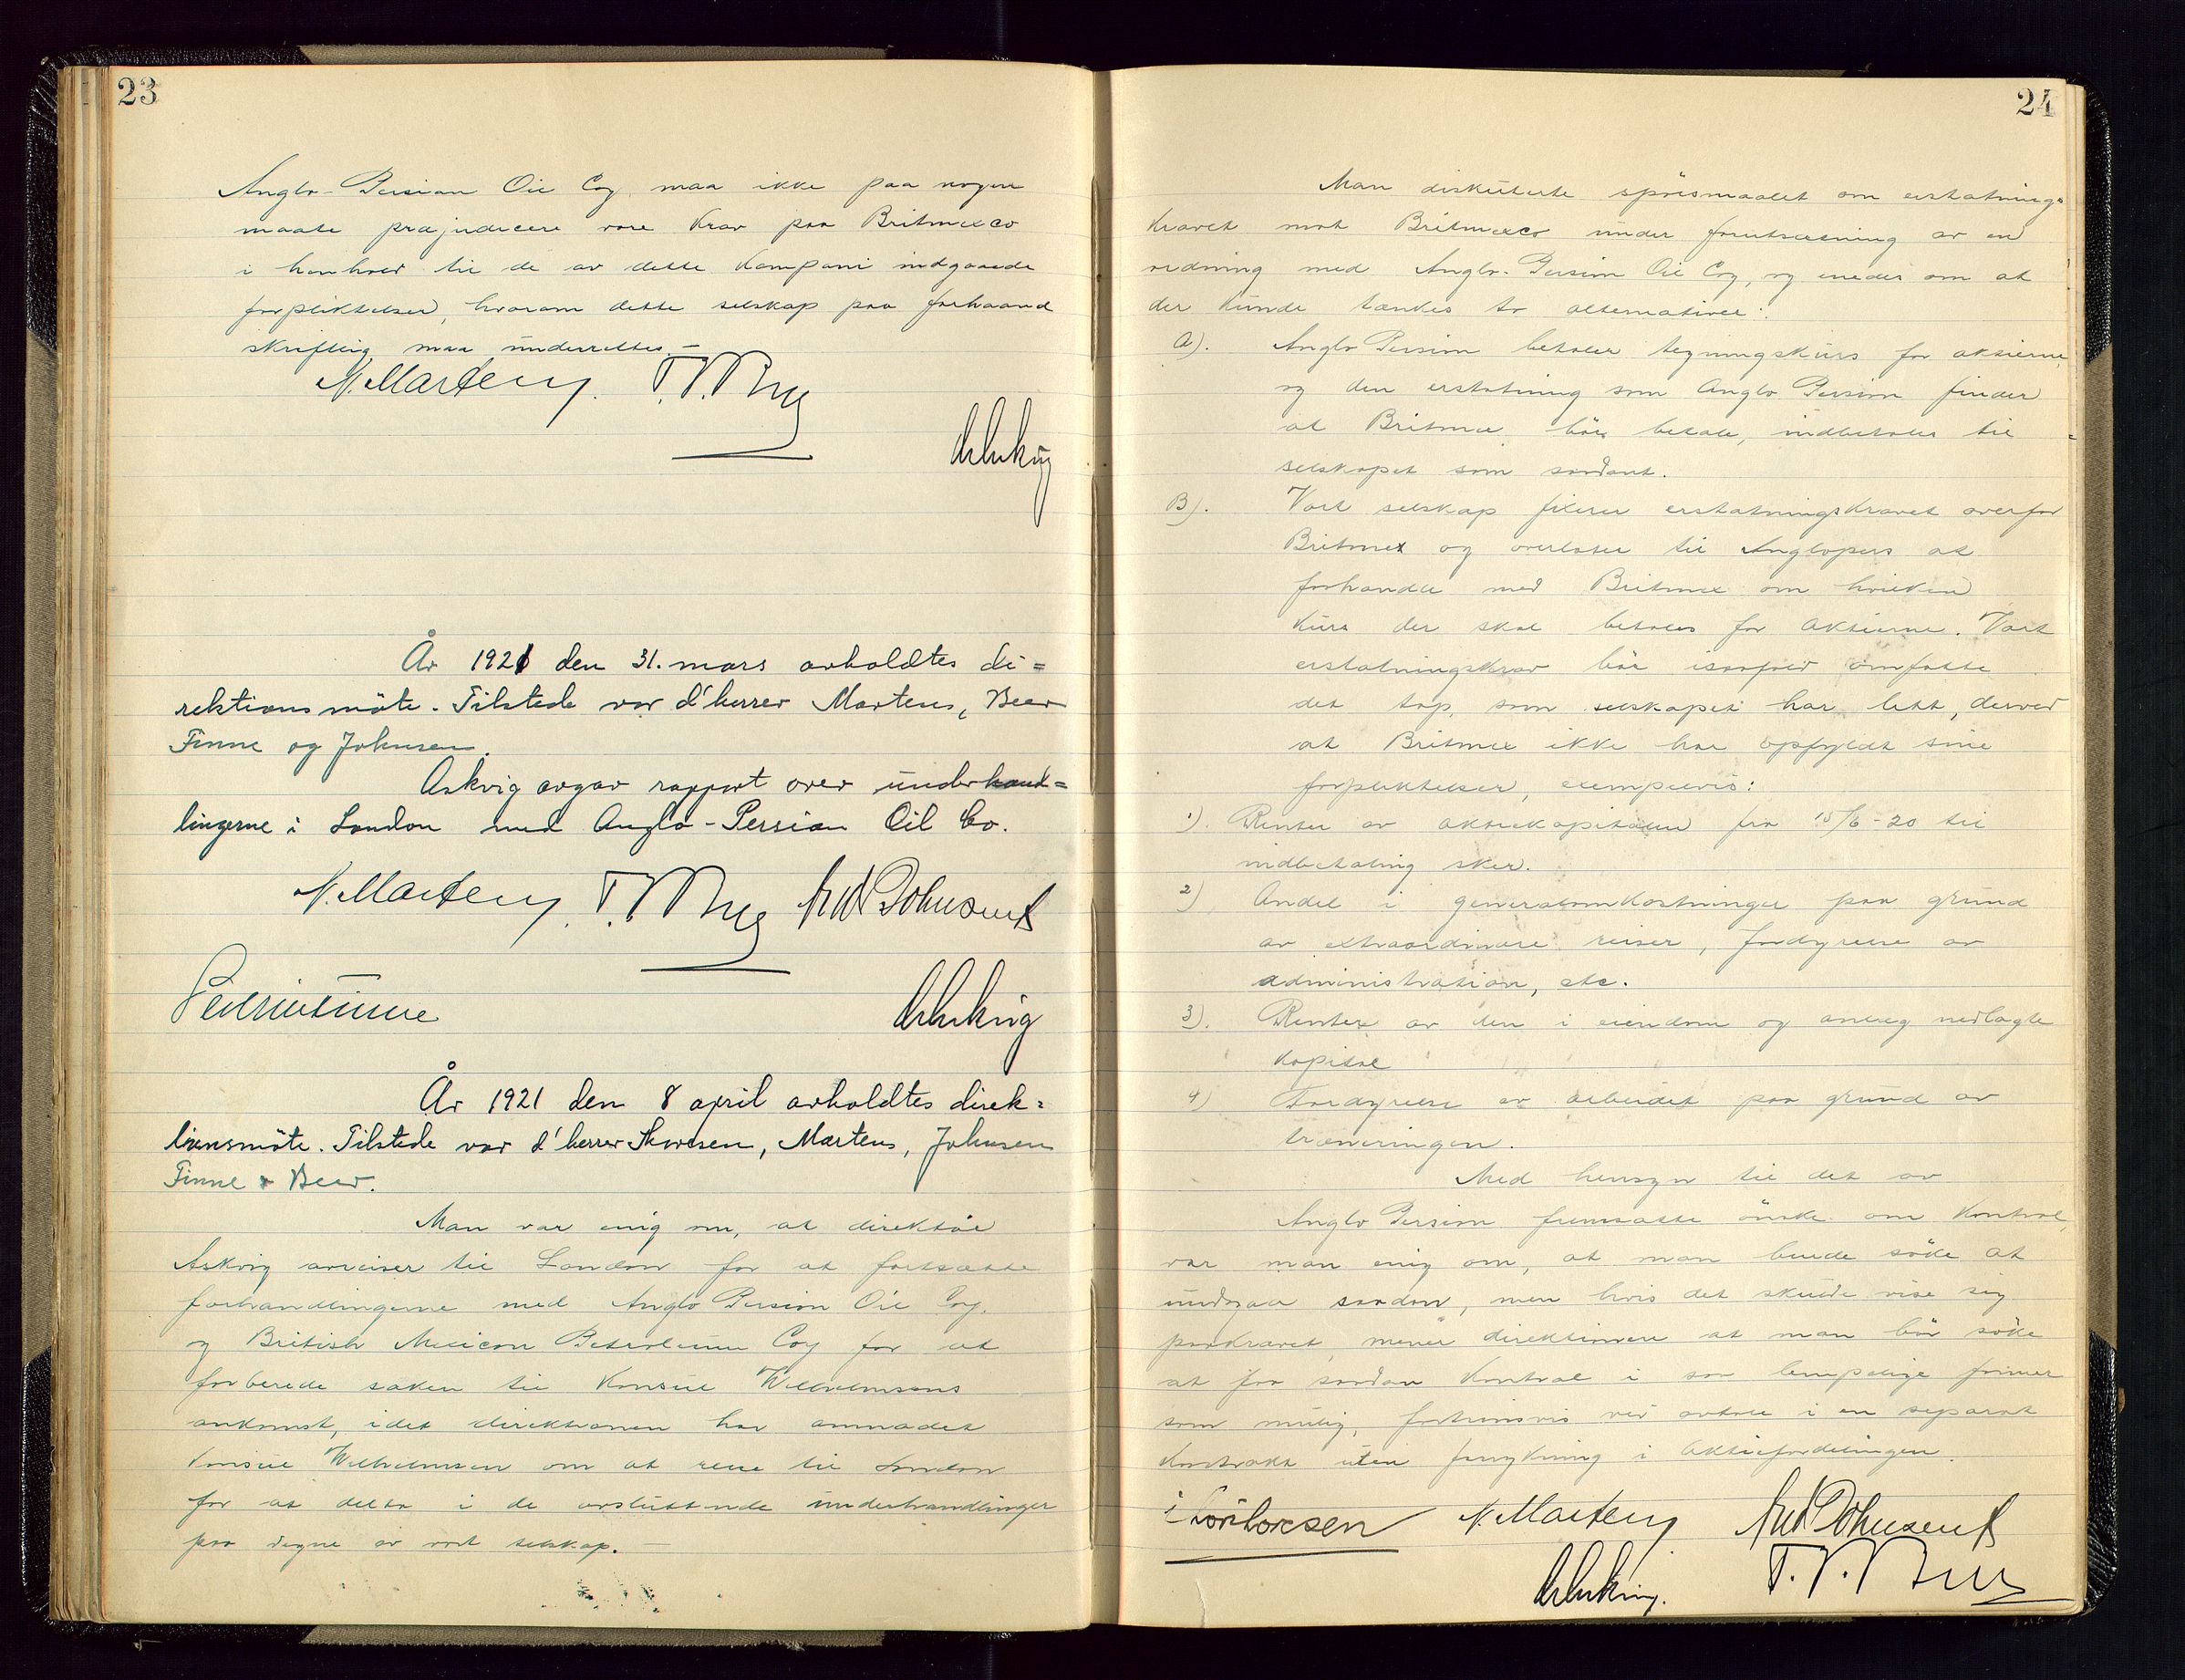 23
Anglo-Persian Oil Coy. maa ikke paa nogen
maate præjudicere vore krav paa Britmexco
i henhold til de av dette Kompani indgaaede
forpliktelser, hvorom dette selskap paa forhaand
skriftlig maa underrettes. —
N. Martens. T. V. Beer
Askvig
År 1921 den 31. mars avholdtes di=
rektionsmöte. Tilstede var d'herrer Martens, Beer
Finne og Johnsen.
Askvig avgav rapport over underhand=
lingerne i London med Anglo-Persian Oil Co.
N. Martens. T. V. Beer Johnsen
Finne
Askvig
År 1921 den 8 april avholdtes direk=
tionsmöte. Tilstede var d'herrer Thoresen, Martens, Johnsen
Finne & Beer.
Man var enig om, at direktör
Askvig avreiser til London for at fortsætte
forhandlingerne med Anglo Persian Oil Coy.
og British Mexican Petroleum Coy for at
forberede saken til Konsul Wilhelmsens
ankomst, idet direktionen har anmodet
Konsul Wilhelmsen om at reise til London
for at delta i de avsluttende underhandlinger
paa vegne av vort selskap. —
24
Man diskuterte spörsmaalet om erstatnings=
kravet mot Britmexco under forutsætning av en
ordning med Anglo-Persian Oil Coy, og enedes om at
der kunde tænkes to alternativer:
A). Anglo Persian betaler tegningskurs for aktierne,
og den erstatning som Anglo Persian finder
at Britmex bör betale, indbetales til
selskapet som saadant.
B). Vort selskap fixerer erstatningskravet overfor
Britmex og overlater til Anglopers at
forhandle med Britmex om hvilken
kurs der skal betales for aktierne. Vort
erstatningskrav bör isaafald omfatte
det tap, som selskapet har lidt, derved
at Britmex ikke har opfyldt sine
forpliktelser, exempelvis:
1). Renter av aktiekapitalen fra 15/6-20 til
indbetaling sker.
2) Andel i generalomkostninger paa grund
av extraordinære reiser, fordyrelse av
administration, etc.
3). Renter av den i eiendom og anlæg nedlagte
kapital
4) Fordyrelse av arbeidet paa grund av
træneringen.
Med hensyn til det av
Anglo Persian fremsatte önske om kontrol,
var man enig om, at man burde söke at
undgaa saadan, men hvis det skulde vise sig
paakrævet, mener direktionen at man bör söke
at faa saadan kontrol i saa lempelige former
som mulig, fortrinsvis ved avtale i en separat
kontrakt uten forrykning i aktiefordelingen.
Thoresen N. Martens Johnsen
Askvig. T. V. Beer